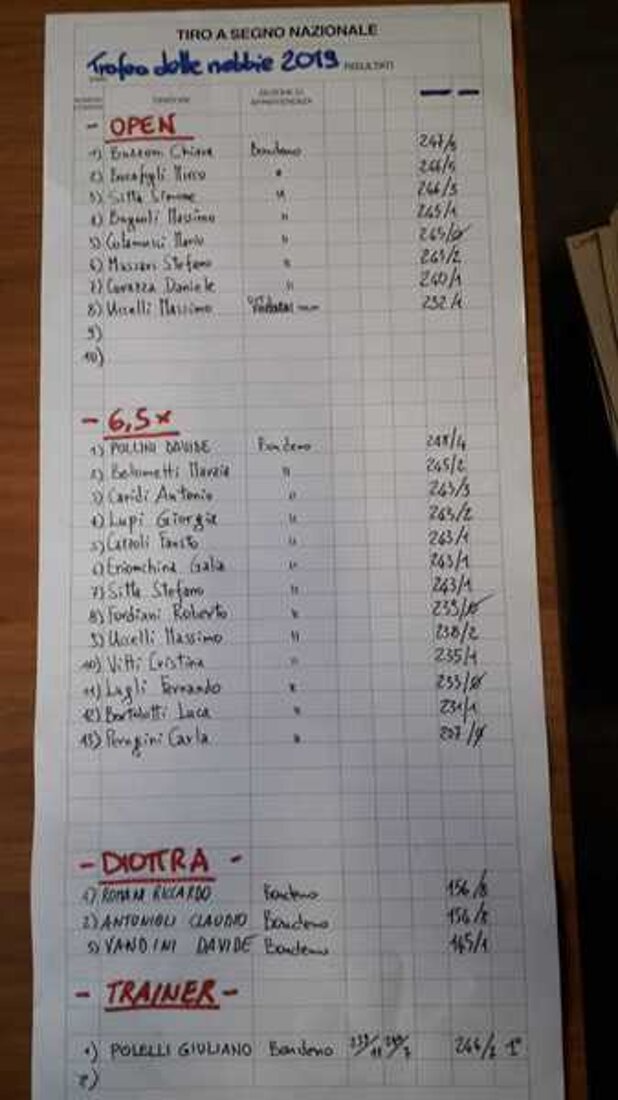 TIRO A SEGNO NAZIONALE
Trofeo delle nebbie 2019 RISULTATI
SEZIONE DI APPARTENENZA
- OPEN
1) Chiara Bondeno 247/5
2) Mirco " 246/5
3) Sitta Simone " 246/3
4) Bagnoli Massimo " 245/1
5) Mario " 245/0
6) Massari Stefano " 243/2
7) Cavazza Daniele " 240/1
8) Uccelli Massimo 232/1
9)
10)
- 6,5x
1) POLLINI DAVIDE Bondeno 248/4
2) Belometti Marzia " 245/2
3) Caridi Antonio " 243/3
4) Lupi Giorgia " 243/2
5) Fausto " 243/1
6) Galia " 243/1
7) Sitta Stefano " 243/1
8) Fordiani Roberto " 239/0
9) Uccelli Massimo " 238/2
10) Vitti Cristina " 235/1
11) Lugli Fernando " 233/0
12) Bortolotti Luca " 231/1
13) Perugini Carla " 207/0
- DIOTTRA -
1) ROMANI RICCARDO Bondeno 156/8
2) ANTONIOLI CLAUDIO Bondeno 156/8
3) VANDINI DAVIDE Bondeno 145/1
- TRAINER -
1) POLELLI GIULIANO Bondeno 246/2 1°
2)